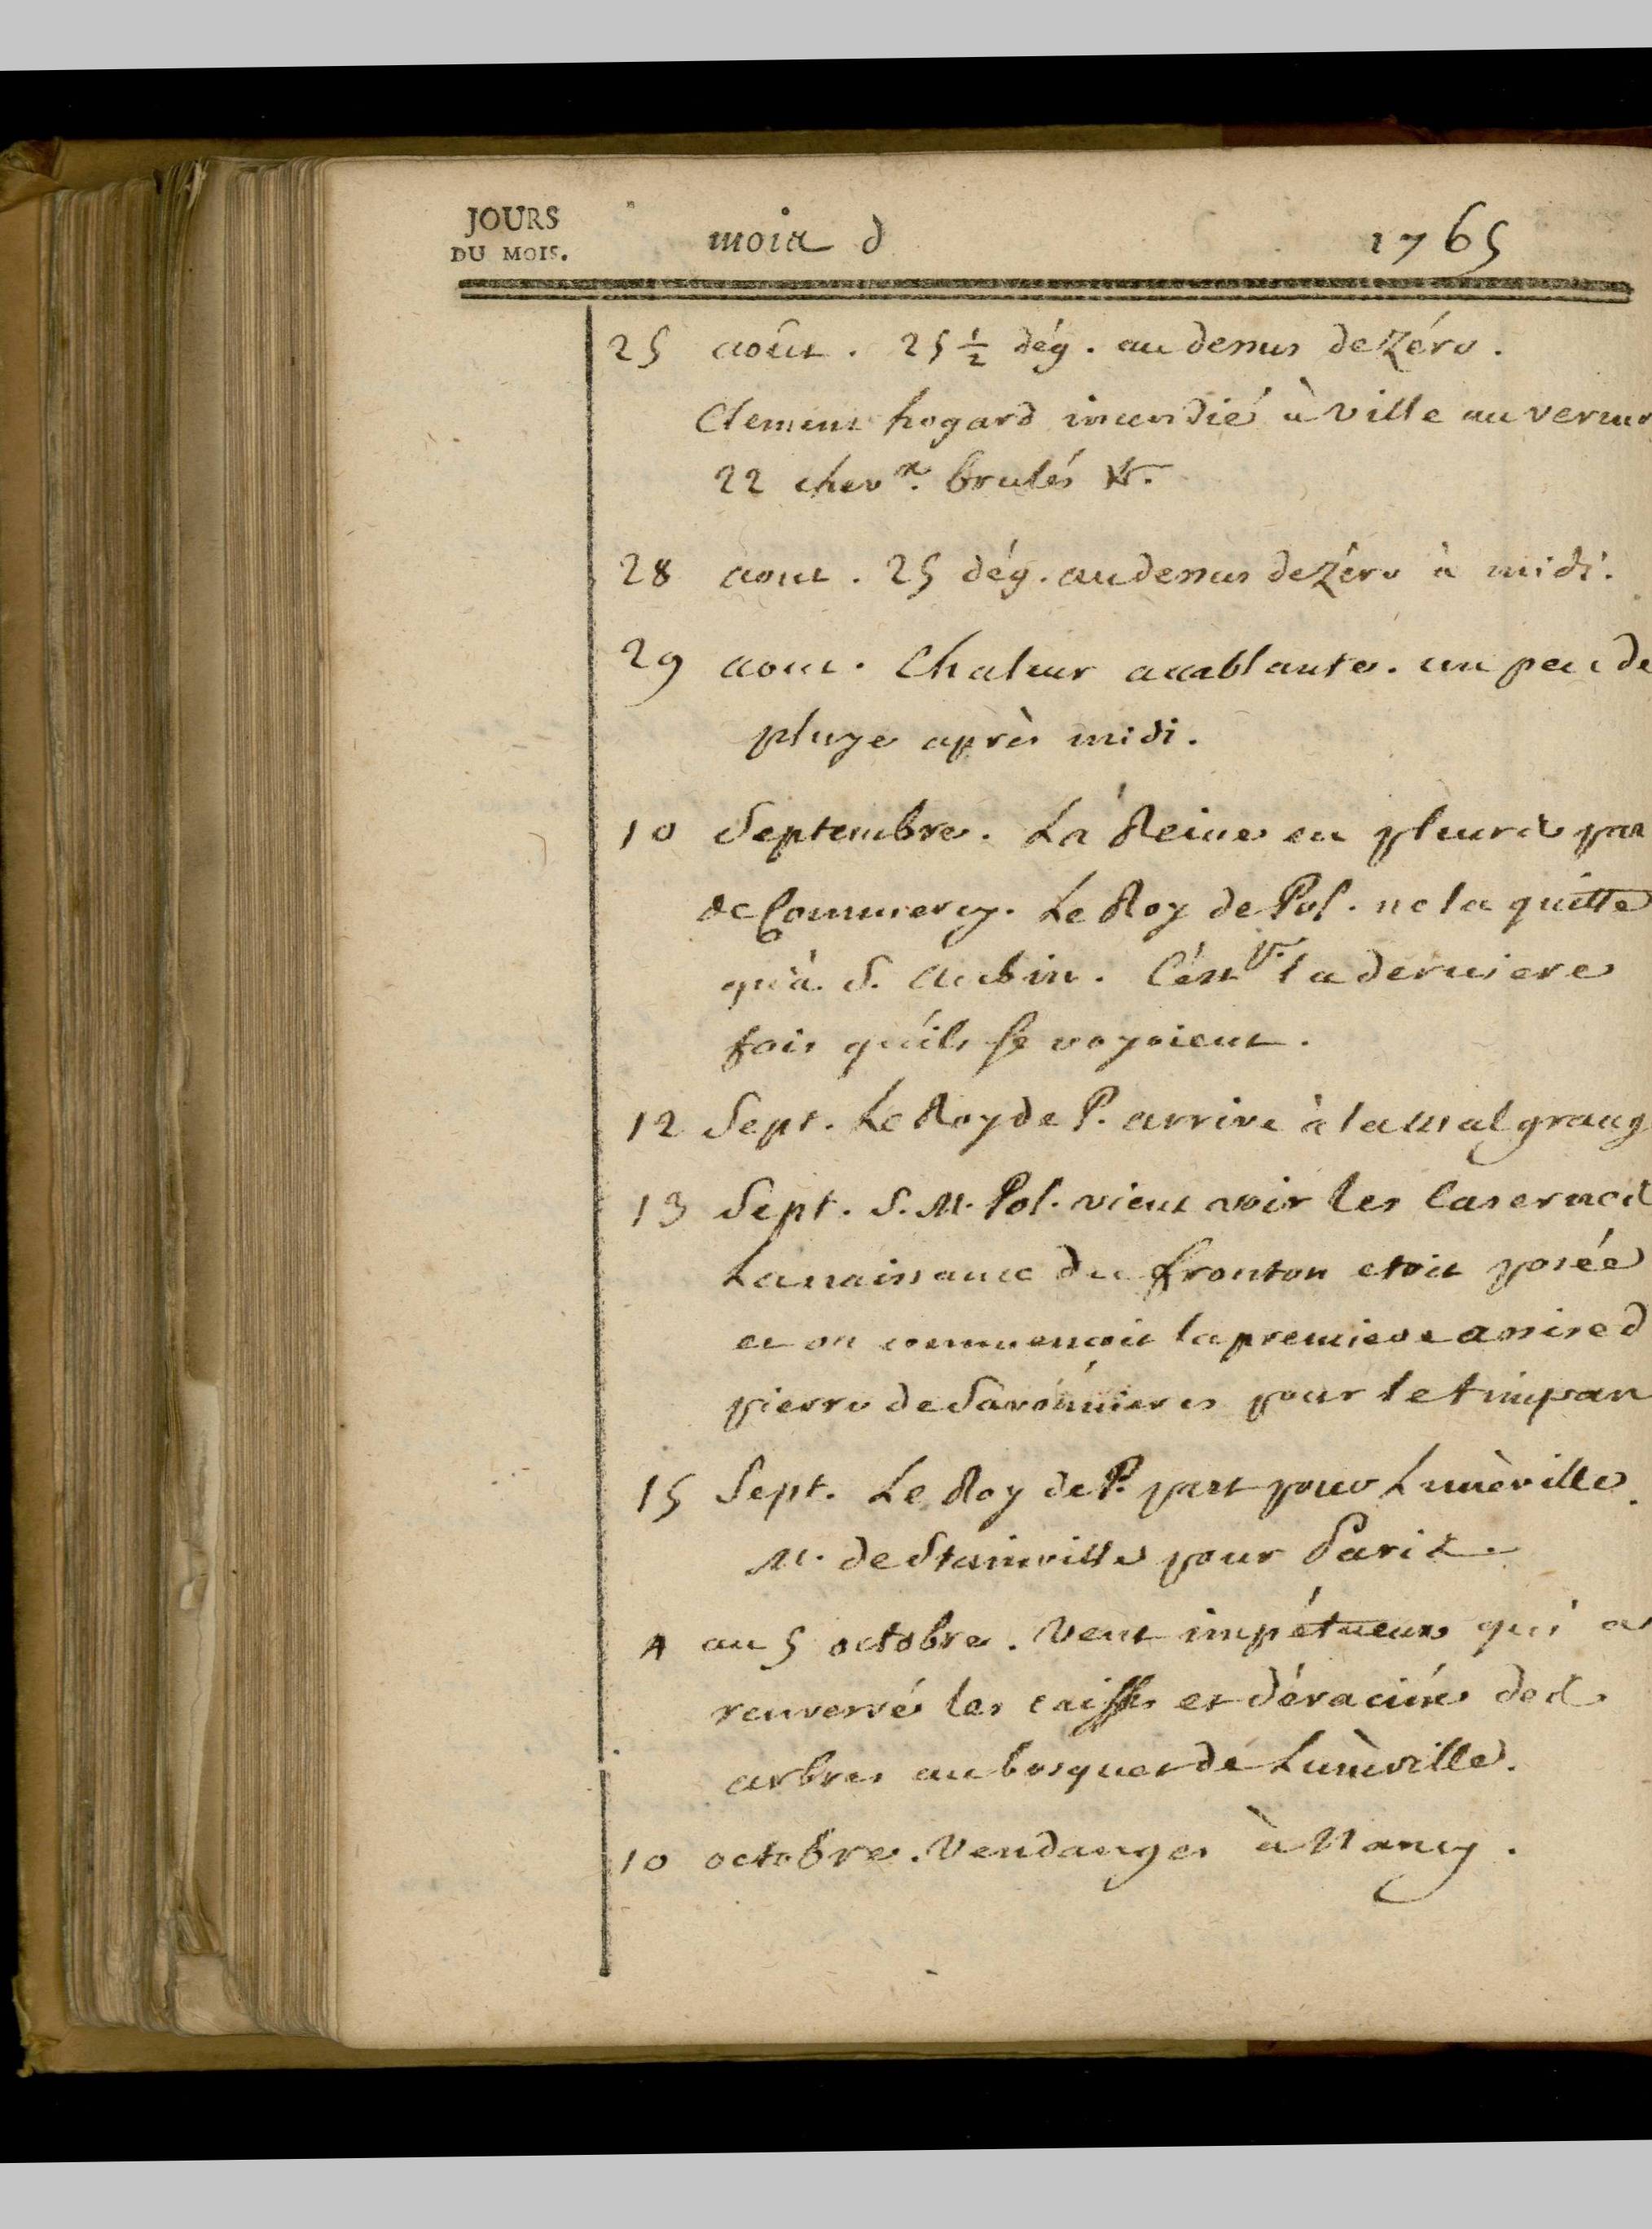 JOURS
DU MOIS.
mois d 1765
25 août. 25 ½ dég. au dessus de Zéro.
Clement hogard incendié à Ville au vermo
22 chevx. brulés &.
28 aout. 25 dég. au dessus de Zéro à midi.
29 aout. Chaleur accablante. un peu de
pluye après midi.
10 Septembre. La Reine en pleurs par
de Commercy. Le Roy de Pol. ne la quitte
qu'à S. Aubin. C'est la derniere
fois qu'ils se voyoient.
12 Sept. Le Roy de P. arrive à la Malgrang
13 Sept. S. M. Pol. vient voir les casernes
La naissance du fronton etoit posée
et on commençoit la premiere assise d
pierre de Savonnieres pour le timpan
15 Sept. Le Roy de P. part pour Lunèville.
M. de Stainville pour Paris.
4 au 5 octobre. Vent impétueux qui a
renversé les caisses et déraciné des
arbres au bosquet de Lunèville.
10 octobre. Vendanges à Nancy.